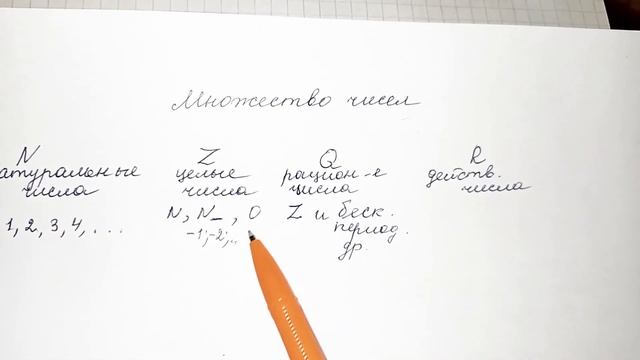 Множество чисел
N Z Q R
атуральные целые рацион-е действ.
числа числа числа числа
1, 2, 3, 4, ... N, N_, 0 Z и беск.
-1; -2; .. период.
др.